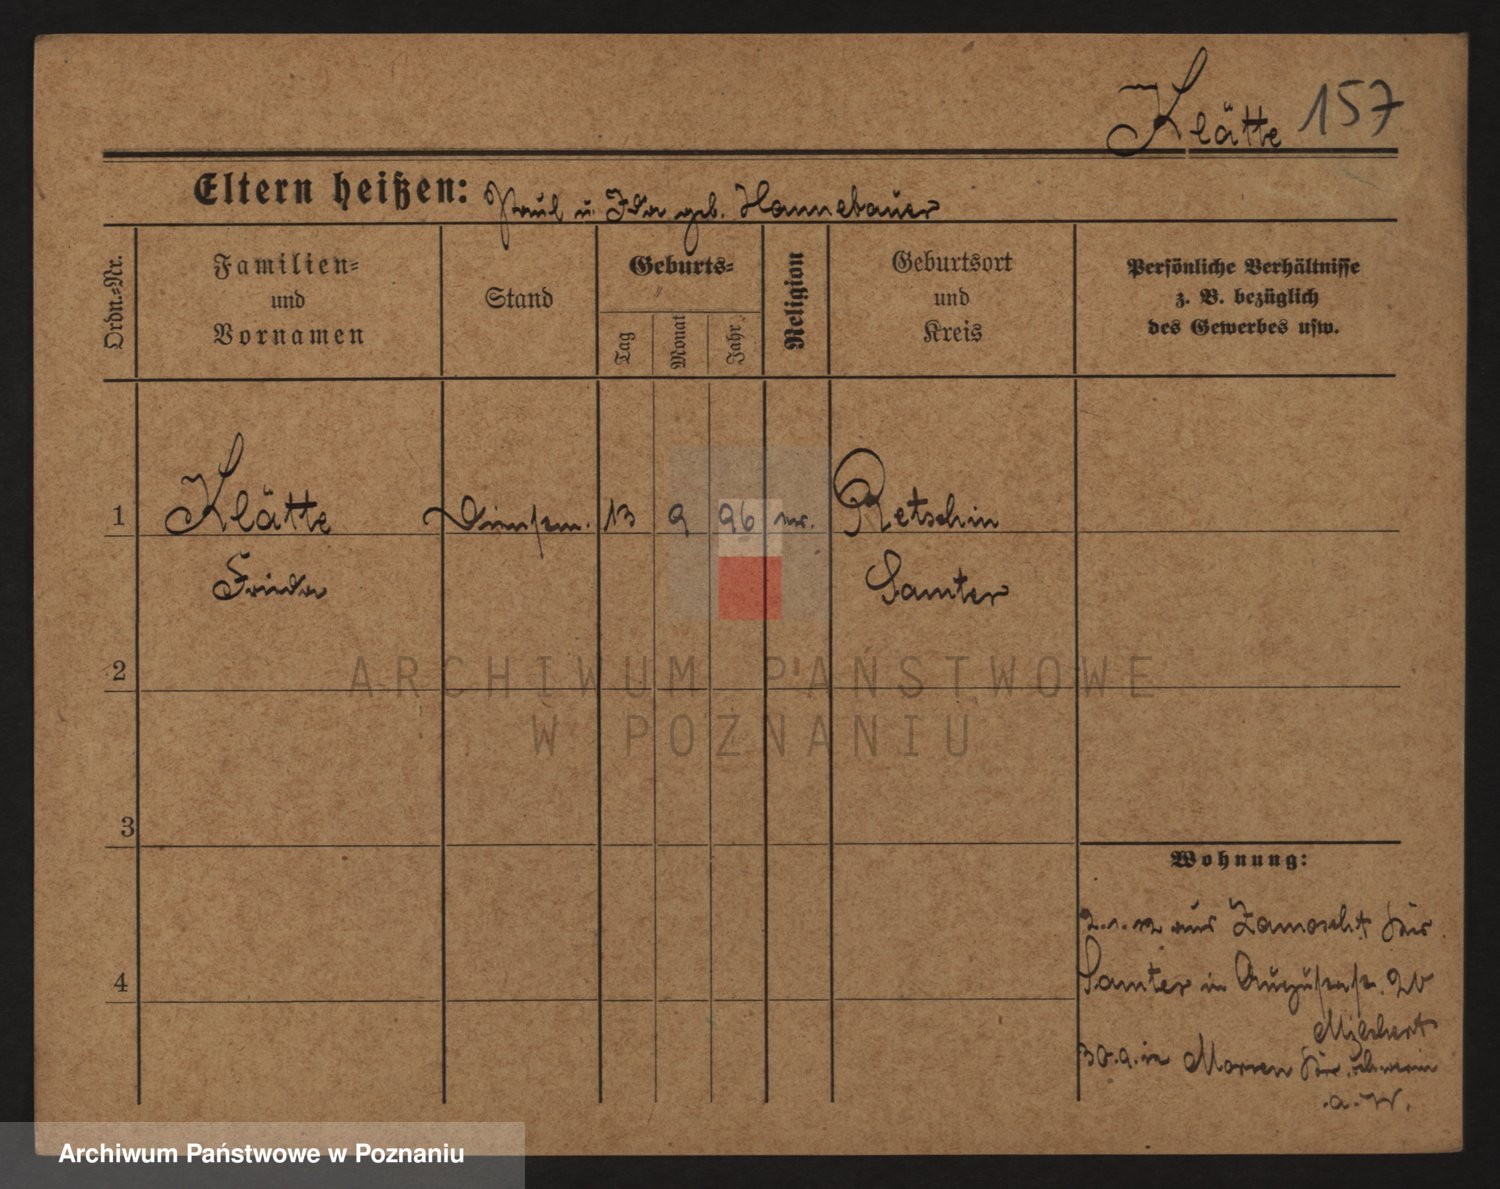 Klätte 157
Eltern heißen: Paul u. Ida geb. Hannebauer
Ordn.-Nr.
Familien-
und
Vornamen
Stand
Geburts-
Tag
Monat
Jahr
Religion
Geburtsort
und
Kreis
Persönliche Verhältnisse
z. B. bezüglich
des Gewerbes usw.
1 Klätte 13 9 96 Retschin
Frida Samter
2
ARCHIWUM PAŃSTWOWE
W POZNANIU
3
Wohnung:
aus Zamoscht Kr.
4
Samter in
a. W.
Archiwum Państwowe w Poznaniu